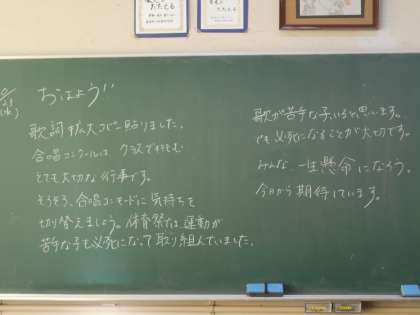 おはよう!!
歌詞拡大コピー貼りました。
合唱コンクールは、クラスで挑む
とても大切な行事です。
そろそろ、合唱コンモードに気持ちを
切り替えましょう。体育祭では、運動が
苦手な子も必死になって取り組んでいました。
歌が苦手な子、いると思います。
でも必死になることが大切です。
みんな、一生懸命になろう。
今日から期待しています。